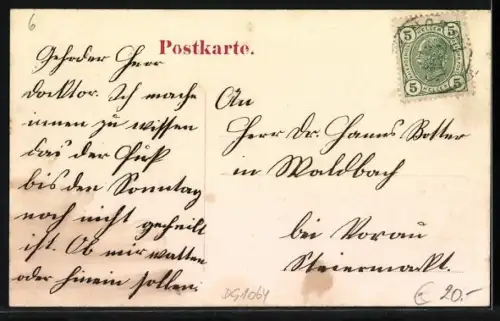 6
Postkarte.
Gehrder Herr
Docktor. Ich mache
innen zu wissen
das der Fuß
bis den Sonntag
noch nicht geheilt
ist. Ob mir watten
oder hinein sollen.
An
Herr Dr. Hanns Rotter
in Waldbach
bei Vorau
Steiermarkt.
5 5
HELLER
5 5
DG1064
€ 20.-